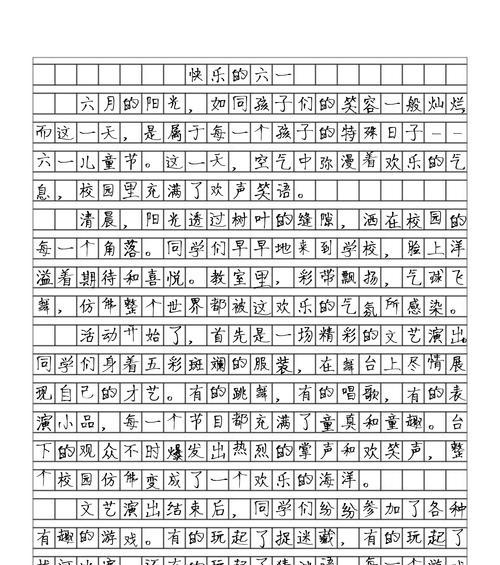 快乐的六一
六月的阳光，如同孩子们的笑容一般灿烂，
而这一天，是属于每一个孩子的特殊日子--
六一儿童节。这一天，空气中弥漫着欢乐的气
息，校园里充满了欢声笑语。
清晨，阳光透过树叶的缝隙，洒在校园的
每一个角落。同学们早早地来到学校，脸上洋
溢着期待和喜悦。教室里，彩带飘扬，气球飞
舞，仿佛整个世界都被这欢乐的气氛所感染。
活动开始了，首先是一场精彩的文艺演出。
同学们身着五彩斑斓的服装，在舞台上尽情展
现自己的才艺。有的跳舞，有的唱歌，有的表
演小品，每一个节目都充满了童真和童趣。台
下的观众不时爆发出热烈的掌声和欢笑声，整
个校园仿佛变成了一个欢乐的海洋。
文艺演出结束后，同学们纷纷参加了各种
有趣的游戏。有的玩起了捉迷藏，有的玩起了